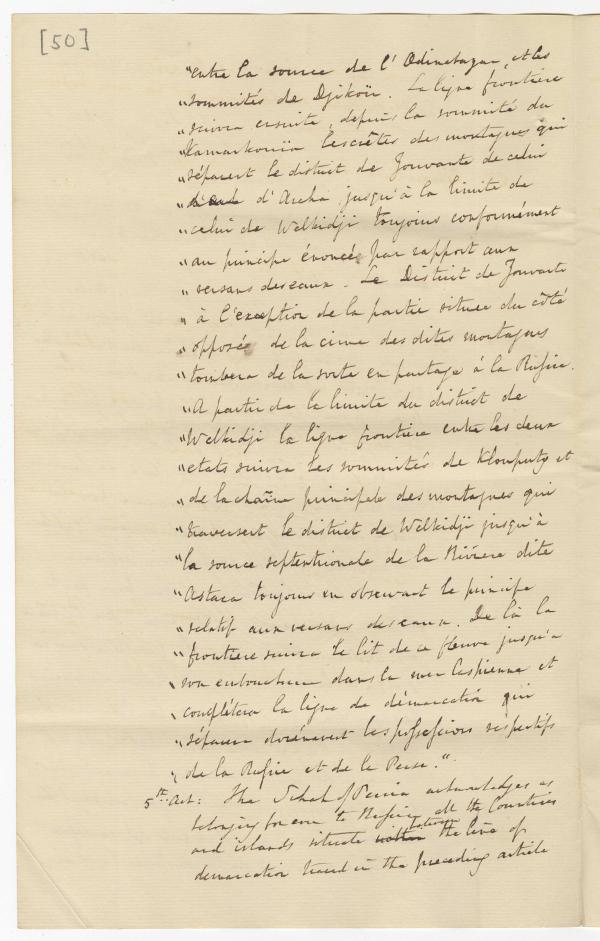 [50]
"entre la source de l'Odinabazar, et les
"sommités de Djikoïr. La ligne frontière
"suivra ensuite, depuis la sommité du
"Kamarkouïa les crêtes des montagnes qui
"séparent le district de Zouvante de celui
" d'Archa jusqu'à la limite de
"celui de Welkidji toujours conformément
"au principe énoncé par rapport aux
"versans des eaux. Le District de Zouvante
"à l'exception de la partie située du côté
"opposée de la cime des dites montagnes
"tombera de la sorte en partage à la Rußie.
"A partir de la limite du district de
"Welkidji la ligne frontière entre les deux
"etats suivra les sommités de Kloupouty et
"de la chaîne principale des montagnes qui
"traversent le district de Welkidji jusqu'à
"la source septentrionale de la Rivière dite
"Astara toujours en observant le principe
"relatif aux versans des eaux. De là la
"frontière suivra le lit de ce fleuve jusqu'à
"son embouchure dans la mer Caspienne et
"complètera la ligne de démarcation qui
"séparera dorénavant les poßeßions respectifs
"de la Rußie et de la Perse."
5th Art: The Schah of Persia acknowledges as
belonging for ever to Rußia all the Countries
and islands situate between the line of
demarcation traced in the preceding article